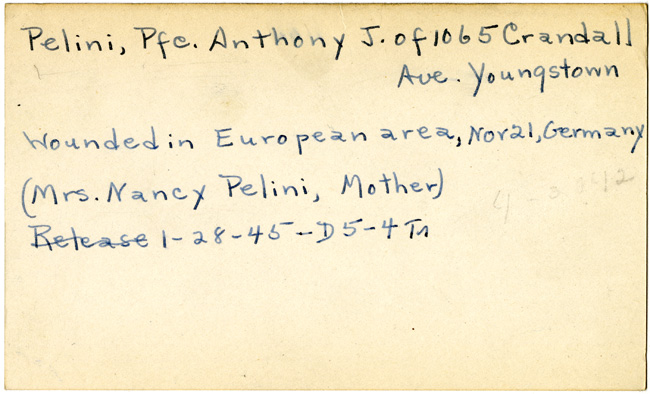 Pelini, Pfc. Anthony J. of 1065 Crandall
Ave. Youngstown
Wounded in European area, Nov 21, Germany
(Mrs. Nancy Pelini, Mother)
Release 1-28-45-D5-4 Tn